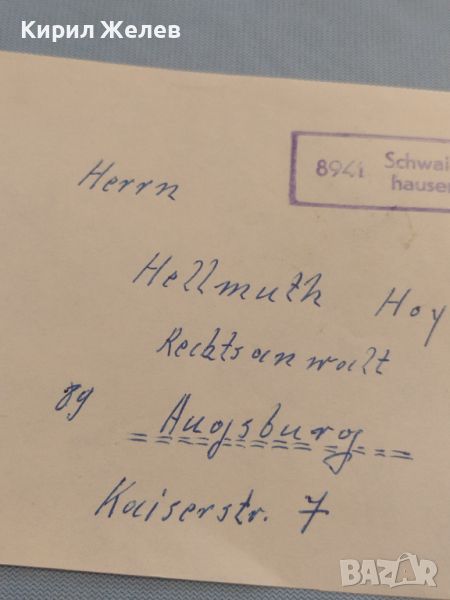 Кирил Желев
8941 Schwai
hausen
Herrn
Hellmuth Hoy
Rechtsanwalt
89 Augsburg
Kaiserstr. 7
BAZAR